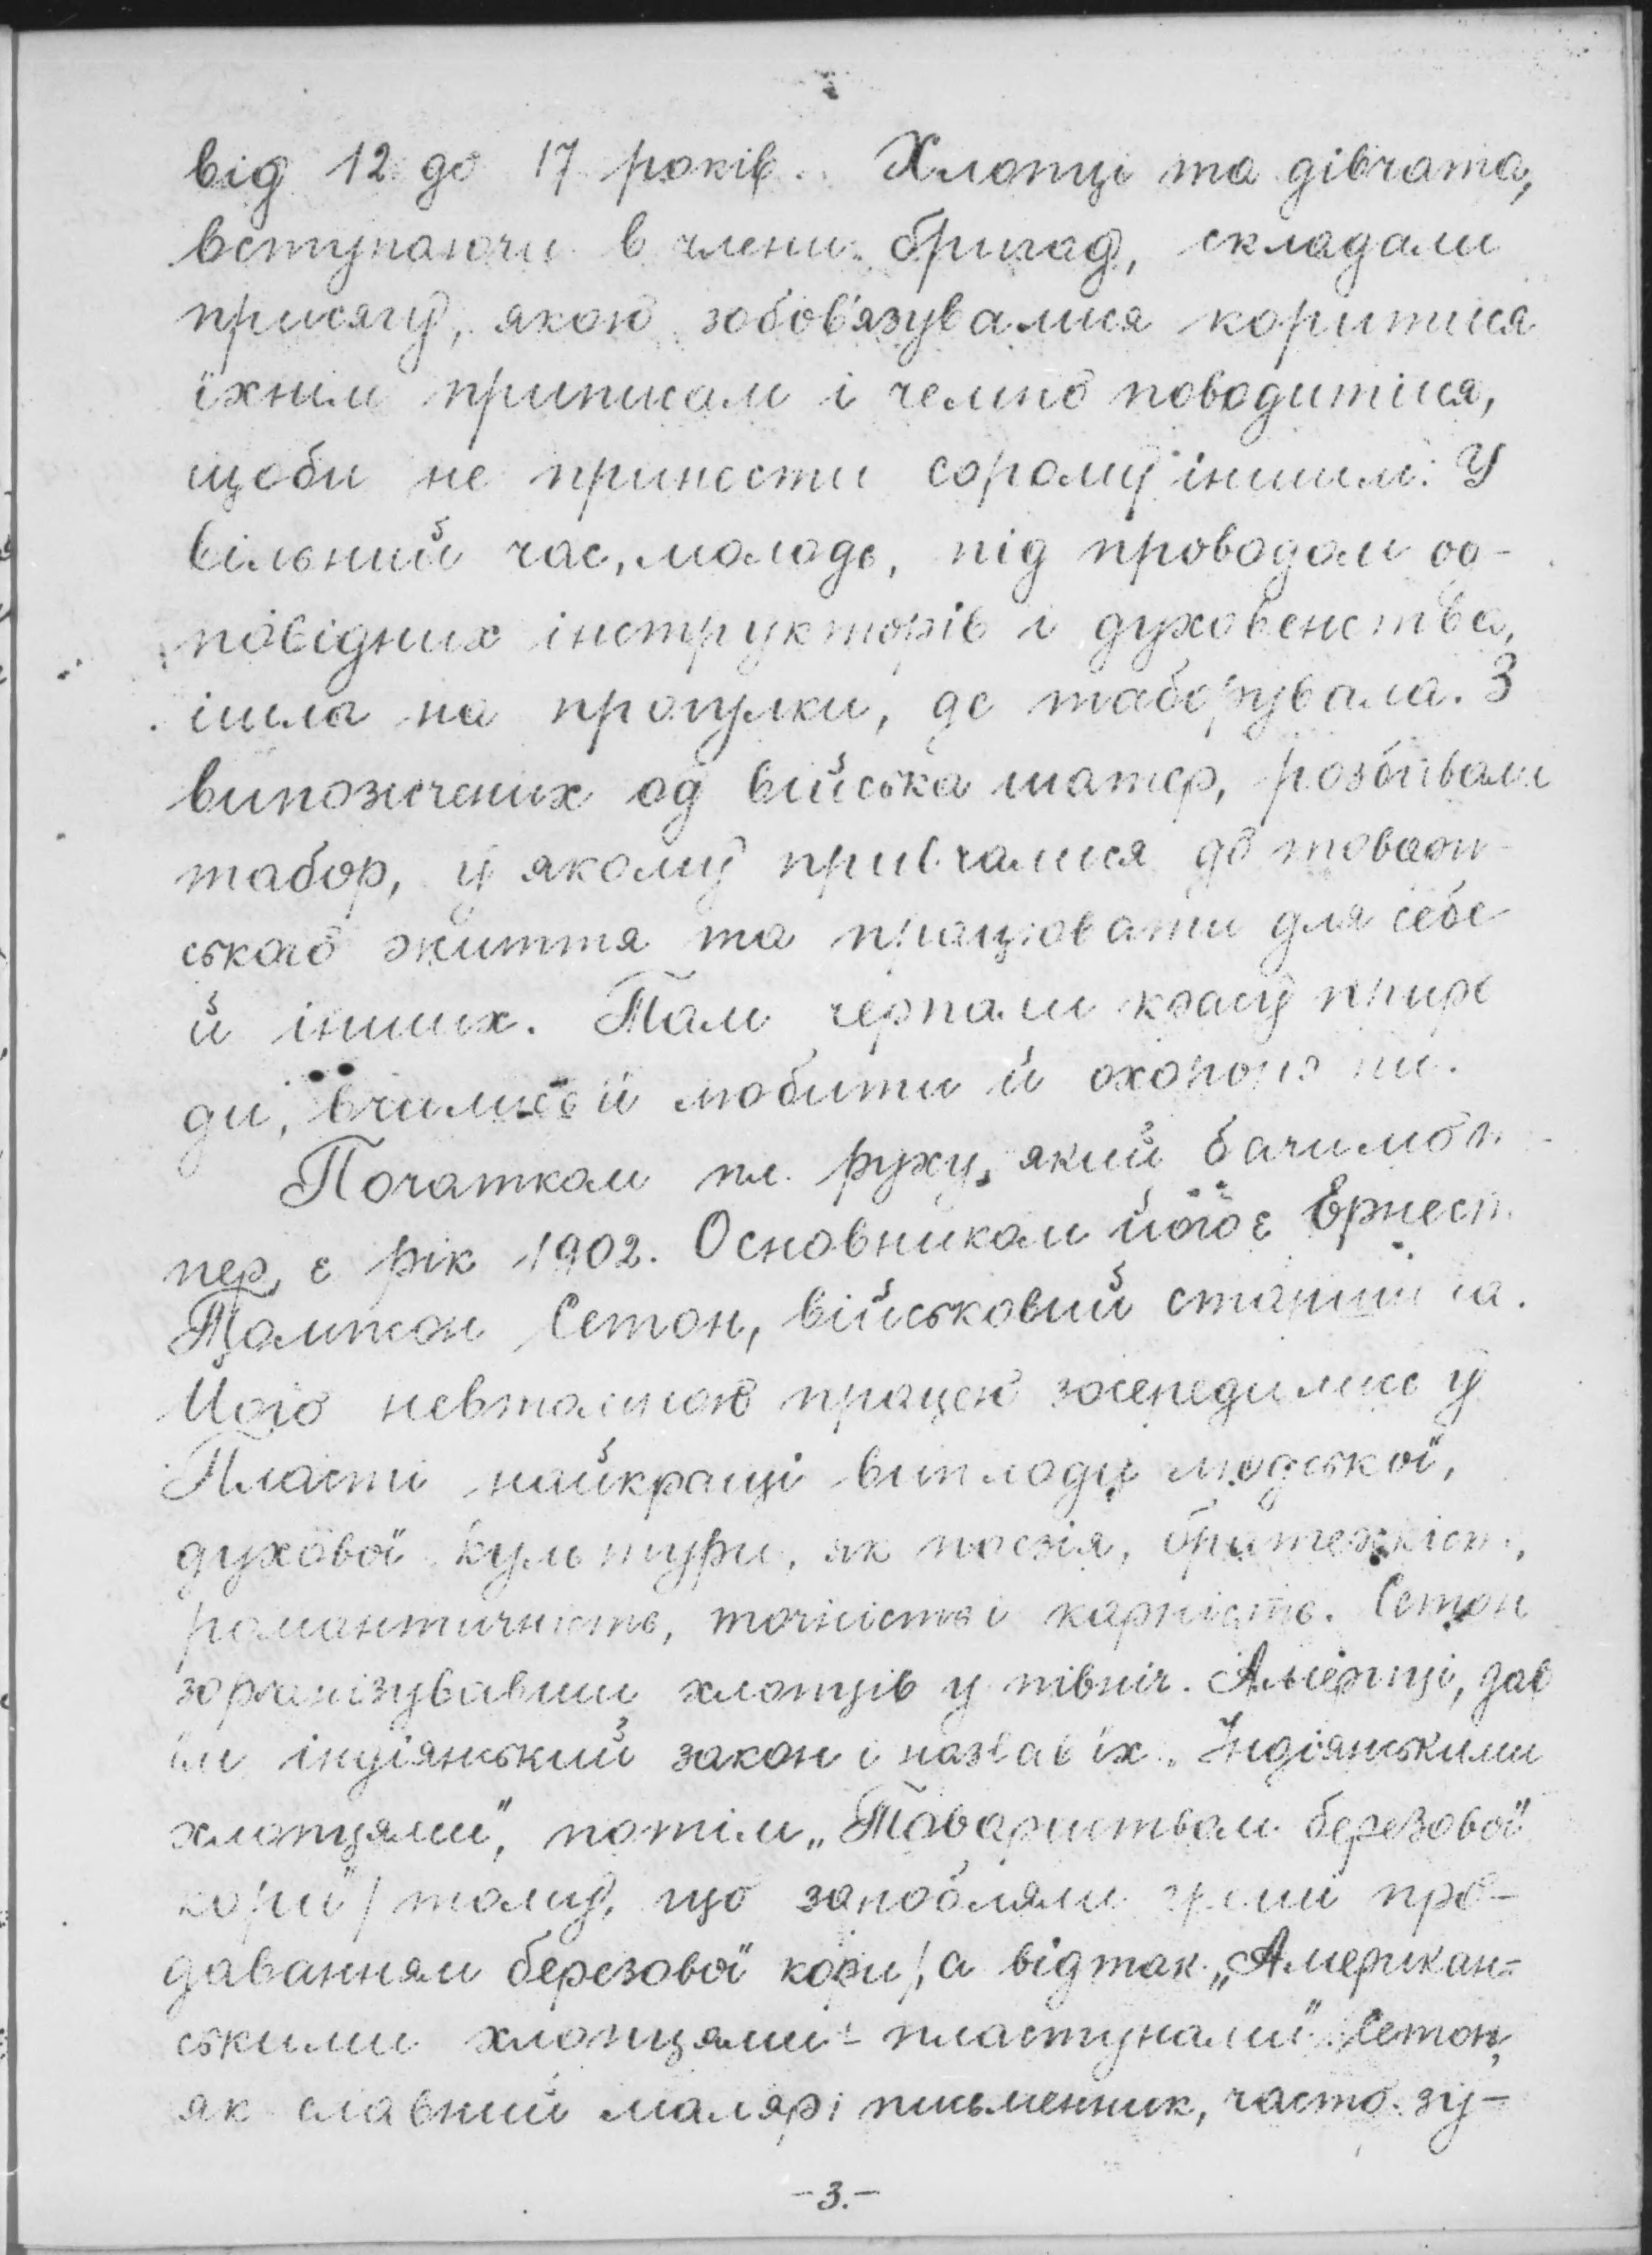 від 12 до 17 років. Хлопці та дівчата,
вступаючи в члени бригад, складали
присягу, якою зобов'язувалися коритися
їхнім приписам і чемно поводитися,
щоби не принести сорому іншим. У
вільний час, молодь, під проводом од-
повідних інструкторів і духовенства,
ішла на прогулки, де таборувала. З
випозичених од війська шатер, розбивали
табор, у якому привчалися до товари-
ського життя та працювати для себе
й інших. Там черпали красу приро
ди, вчились її любити й охороняти.
Початком пл. руху, який бачимо те-
пер, є рік 1902. Основником його є Ернест
Томпсон Сетон, військовий старшина.
Його невтомною працею зосередились у
Пласті найкращі виплоди людської,
духової культури, як поезія, братерськість,
романтичність, точність і карність. Сетон
зорганізувавши хлопців у північ. Америці, дав
їм індіянський закон і назвав їх „Індіянськими
хлопцями", потім „Товариством березової
кори" / тому, що заробляли гроші про-
даванням березової кори /, а відтак „Американ-
ськими хлопцями - пластунами". Сетон,
як славний маляр і письменник, часто зу-
-3.-